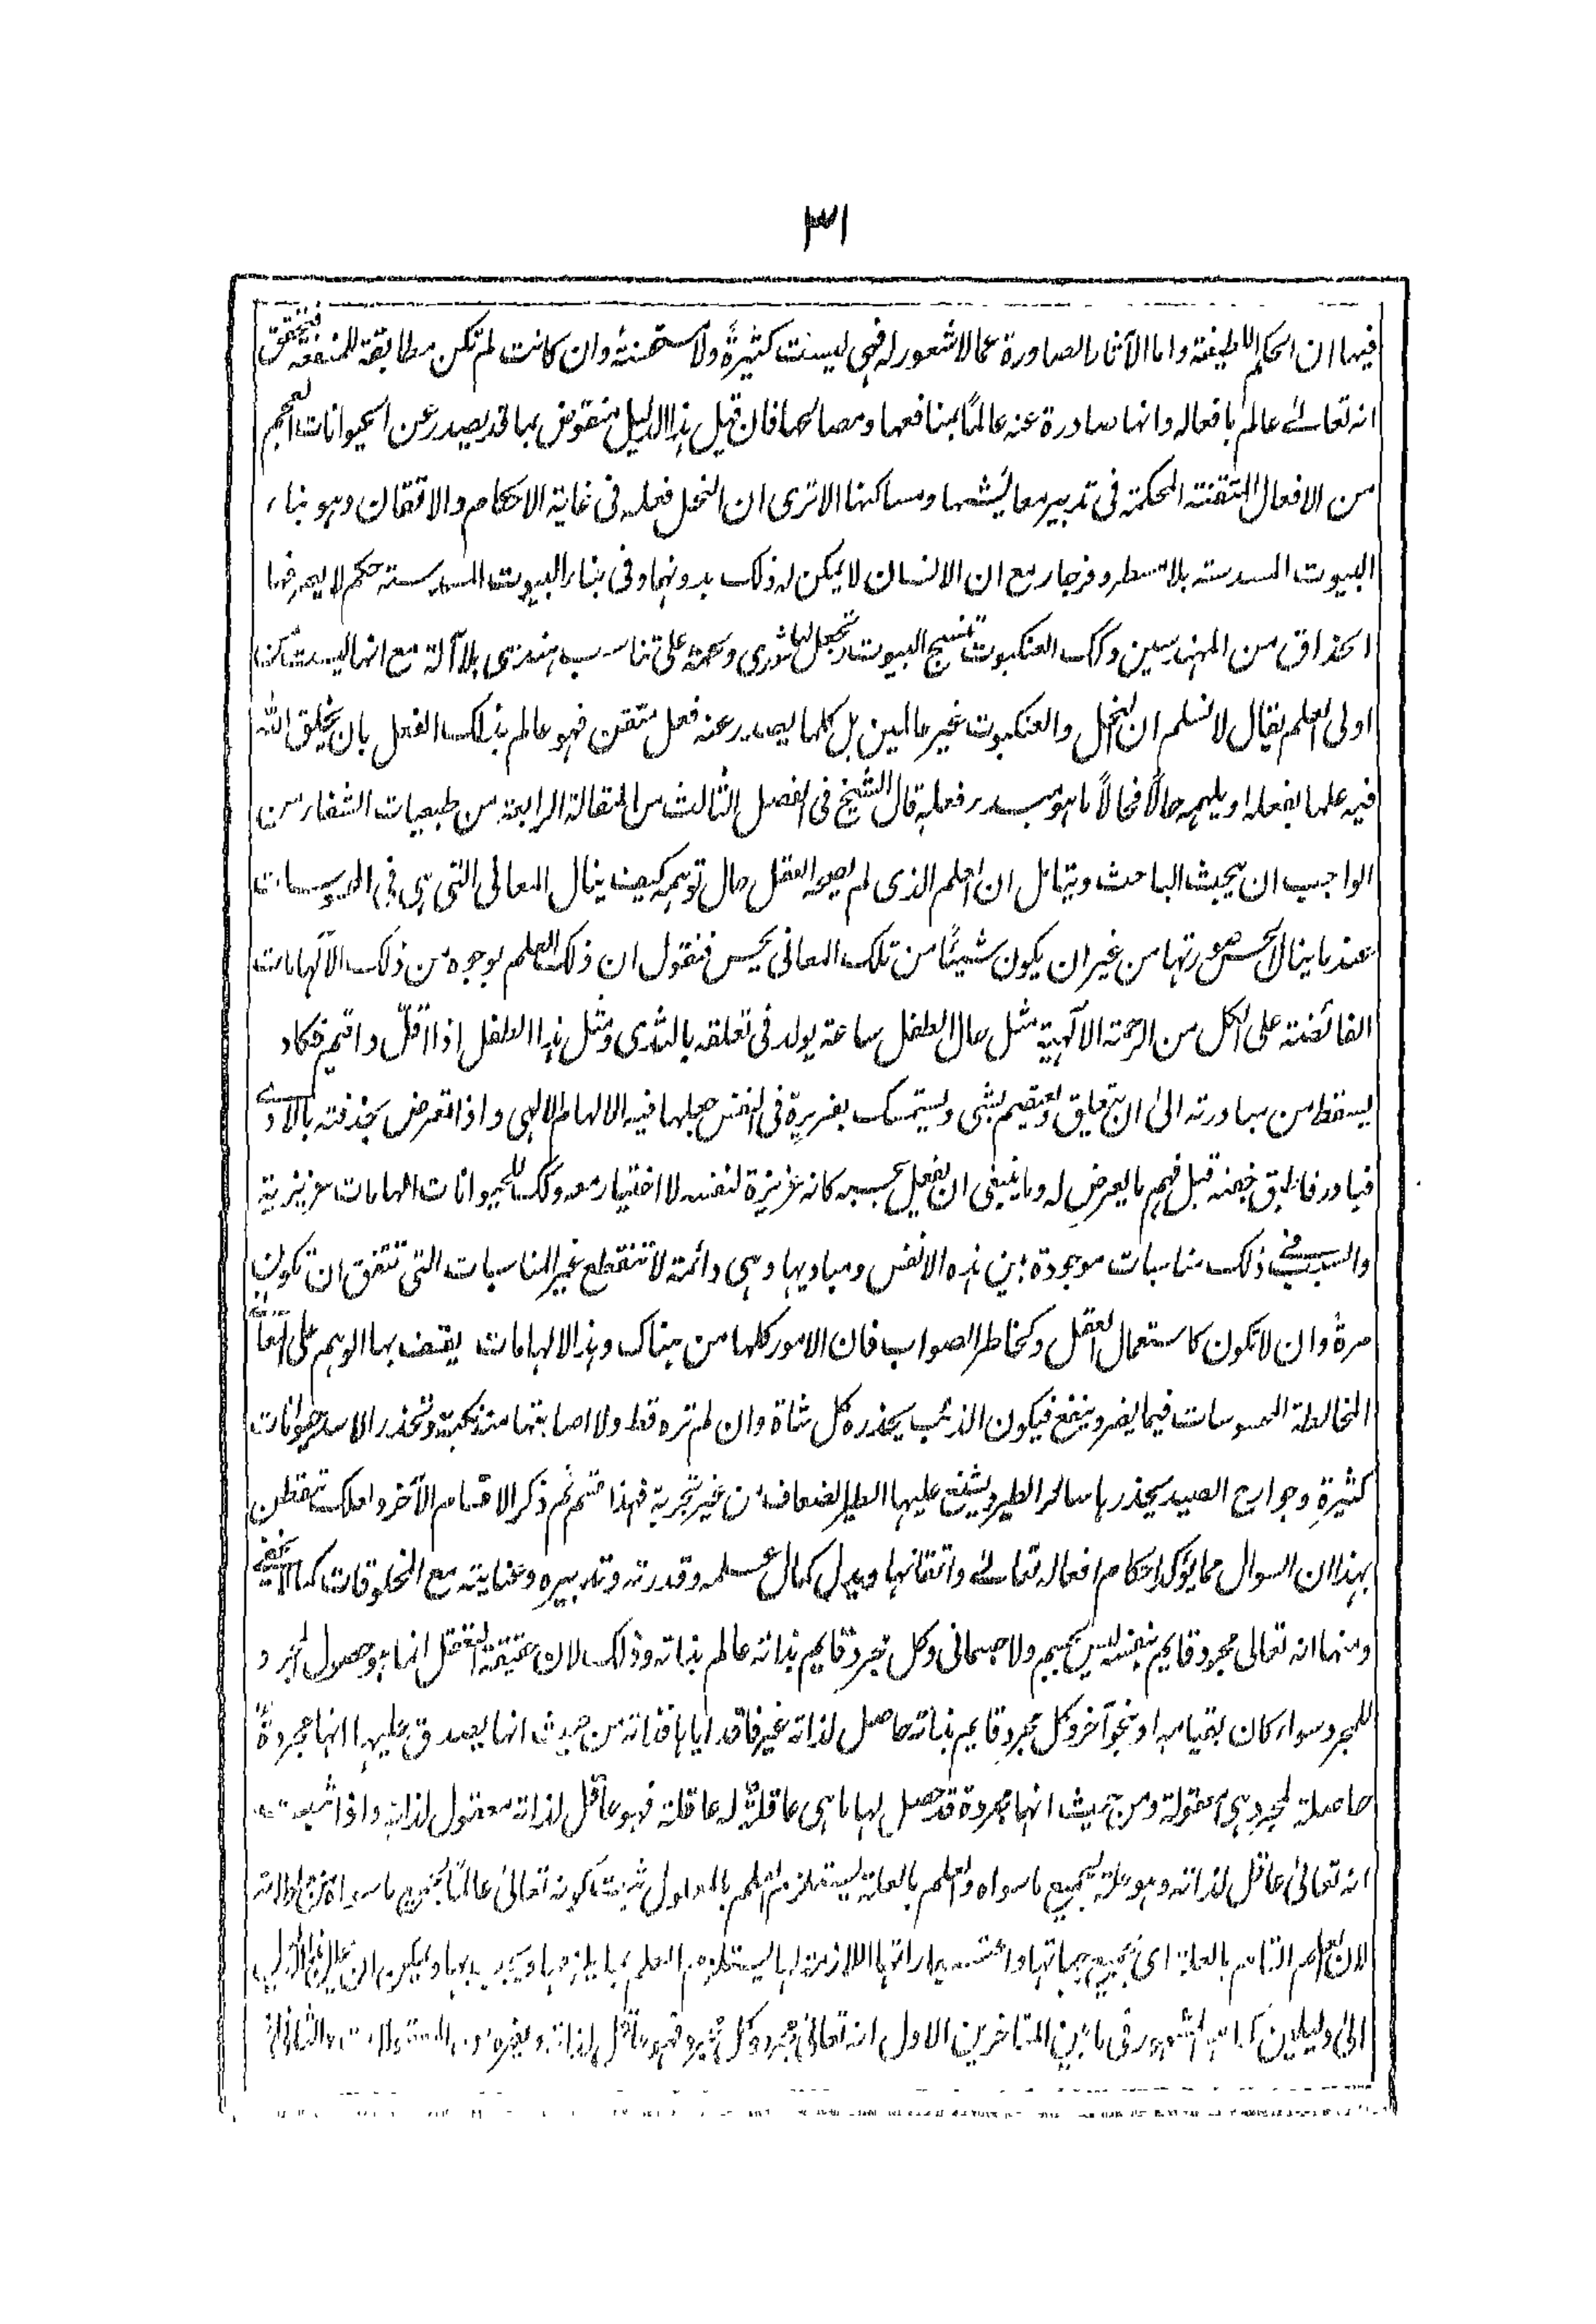 ٣١
فيها ان الحكم اللطيفة واما الآثار الصادرة عما لا شعور له فهى ليست كثيرةً ولا مستحسنة وان كانت لم تكن مطابقة للمنفعة فتحقق
انه تعالىٰ عالم بافعاله وانها صادرة عنه عالمًا بمنافعها ومصالحها فان قيل هذا الدليل منقوض بما قد يصدر عن الحيوانات العجم
من الافعال المتقنة المحكمة فى تدبير معايشها ومساكنها الا ترى ان النحل فعله فى غاية الاحكام والاتقان وهو بناء
البيوت المسدسة بلا مسطر وفرجار مع ان الانسان لا يمكن له ذلك بدونهما وفى بناء البيوت المسدسة حكم لا يعرفها
الحذاق من المهندسين وكك العنكبوت تنسج البيوت وتجعل لها سُدى ولحمة على تناسب هندسى بلا آلة مع انها ليست من
اولى العلم يقال لا نسلم ان النحل والعنكبوت غير عالمين بل كلما يصدر عنه فعل متقن فهو عالم بذلك الفعل بان يخلق الله
فيه علما بفعله او يلهمه حالًا فحالًا ما هو مبدء فعله قال الشيخ فى الفصل الثالث من المقالة الرابعة من طبعيات الشفاء من
الواجب ان يبحث الباحث ويتامل ان العلم الذى لم يصحبه العقل حال توهمه كيف ينال المعانى التى هى فى المحسوسات
عند ما ينال الحس صورتها من غير ان يكون شيئًا من تلك المعانى يحس فنقول ان ذلك العلم بوجوه من ذلك الالهامات
الفائضة على الكل من الرحمة الالٰهية مثل حال الطفل ساعة يولد فى تعلقه بالثدى ومثل هذا الطفل اذا اقلّ واقيم فكاد
يسقط من مبادرته الىٰ ان يتعلق ويعتصم بشى ويستمسك بغريزةٍ فى النفس جعلها فيه الالهام الالهى واذا تعرض لحدقته بالاذى
فبادر فاطبق جفنه قبل فهم ما يعرض له وما ينبغى ان يفعل بحسبه كانه غريزة لنفسه لا اختيار معه وكك للحيوانات الهامات غريزية
والسبب فى ذلك مناسبات موجودة بين هذه الانفس ومباديها وهى دائمة لا تنقطع غير المناسبات التى تتفق ان تكون
مرةً وان لا تكون كاستعمال العقل وكخاطر الصواب فان الامور كلها من هناك وهذا الالهامات يقف بها الوهم على المعانى
المخالطة المحسوسات فيما يضر وينفع فيكون الذئب يحذره كل شاة وان لم تره قط ولا اصابتها منه نكبة وتحذر الاسد حيوانات
كثيرةٍ وجوارح الصيد يحذرها سائر الطير ويشنع عليها الطير الضعاف من غير تجربة فهذا قسم ثم ذكر الاقسام الآخر ولعلك تتفطن
بهذا ان السوال مما يؤكد احكام افعاله تعالىٰ واتقانها ويدل كمال علمه وقدرته وتدبيره وعنايته مع المخلوقات كما لا يخفى
ومنها انه تعالى مجرد قايم بنفسه ليس بجسم ولا جسمانى وكل مجرد قايم بذاته عالم بذاته وذلك لان حقيقة التعقل انما هو حصول المجرد
للمجرد سواء كان بقيامه او بنحو آخر وكل مجرد قايم بذاته حاصل لذاته غير فاقد اياها فذاته من حيث انها يصدق عليها انها مجردةٌ
حاصلة لمجرد هى معقولة ومن حيث انها مجردة قد حصل لها ما هى عاقلةٌ له عاقلة فهو عاقل لذاته معقول لذاته واذا ثبت
انه تعالىٰ عاقل لذاته وهو علة لجميع ما سواه والعلم بالعلة يستلزم العلم بالمعلول ثبت كونه تعالىٰ عالمًا بجميع ما سواه
لان العلم التام بالعلة اى بجميع جهاتها واعتباراتها اللازمة لها يستلزم العلم بما يلزمها ويجب بها ويمكن ان
الىٰ دليلين كما هو المشهور فى ما بين المتاخرين الاول انه تعالىٰ مجرد وكل مجرد فهو عاقل لذاته ولغيره من المعقولات والثانى